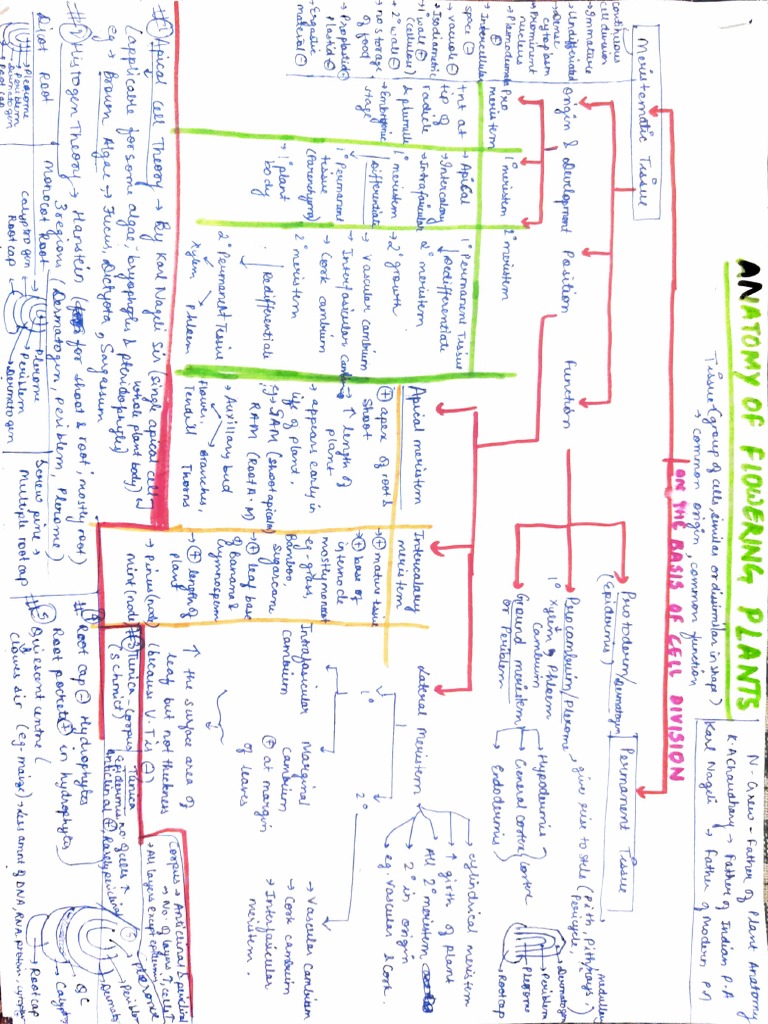 ANATOMY OF FLOWERING PLANTS
N-Grew - Father of Plant Anatomy
K.A Chaudhary → Father of Indian P.A
Karl Nageli → Father of Modern PA
Tissue (group of cells, similar or dissimilar in shape)
→ common origin, common function
ON THE BASIS OF CELL DIVISION
Meristematic Tissue
Permanent Tissue
continuous cell division
→ Immature
→ Undifferentiated
→ Dense cytoplasm
→ Prominent nucleus
→ Plasmodesmata ⊕
→ Intercellular space ⊖
→ vacuole ⊖
→ Isodiametric
→ 1° wall ⊕ (cellulose)
→ 2° wall ⊖
→ no storage of food
→ Proplastid ⊕ Plastid ⊖
→ Ergastic material ⊖
Origin & Development
Position
Function
Pro meristem
1° meristem
2° meristem
→ Int at tip of radicle & plumule
→ Embryonic stage
→ Apical
→ Intercalary
→ Intrafascicular
1° meristem
↓ Differentiate
1° Permanent tissue (Parenchyma)
→ 1° plant body
1° Permanent Tissue
↓ Dedifferentiate
2° meristem
→ 2° growth
→ Vascular cambium
→ Interfascicular cambium
→ Cork cambium
2° meristem
↓ Redifferentiate
2° Permanent Tissue
Xylem Phloem
Protoderm/Dermatogen (Epidermis)
Procambium/Plerome → give rise to stele (Pith, Pith rays, medullary, Pericycle,
1° Xylem & Phloem
Cambium
Ground meristem or Periblem
Hypodermis
General cortex
Endodermis
cortex
Dermatogen
Periblem
Plerome
Rootcap
Apical meristem
⊕ apex of root & shoot
→ ↑ length of plant
→ appears early in life of plant
eg. SAM (shoot apical M)
RAM (Root A.M)
→ Auxillary bud
Flower, Branches,
Tendril Thorns
Intercalary meristem
→ ⊕ mature tissue
→ ⊕ base of internode
mostly monocot
eg. grass, Bamboo, Sugarcane
→ ⊕ leaf base of Banana & Gymnosperm
→ ⊕ length of plant
→ Pinus (node)
mint (node)
Lateral Meristem
→ cylindrical meristem
→ ↑ girth of plant
→ All 2° meristem
→ 2° in origin
→ eg. Vascular & Cork
1°
2°
Intrafascicular cambium
Marginal cambium
⊕ at margin of leaves
↑ the surface area of leaf but not thickness
→ Vascular Cambium
→ Cork cambium
→ Interfascicular meristem.
#① Apical Cell Theory → By Karl Nageli Sir (single apical cell → whole plant body)
(applicable for some algae, bryophytes & pteridophytes)
eg → Brown Algae → Fucus, Dictyota, Sargassum
#② Histogen Theory → Hanstein (for shoot & root, mostly root)
3 regions (Dermatogen, Periblem, Plerome)
Dicot Root
Plerome
Periblem
Dermatogen
Root cap
Monocot Root
Calyptrogen
Root cap
Plerome
Periblem
Dermatogen
Screw pine →
Multiple root cap
Tunica - Corpus
(Schmidt)
Tunica
Epidermis
Anticlinal ⊕
Rarely periclinal
Corpus → Anticlinal & periclinal
→ No. of layers ↑, cells ↑
→ All layers except epidermis
#④ Root cap ⊖ Hydrophytes
Root pockets ⊕ in hydrophytes
#⑤ Quiescent centre (
Clowes sir (eg - maize) → Less amount of DNA, RNA, protein
Plerome
Periblem
QC
Rootcap